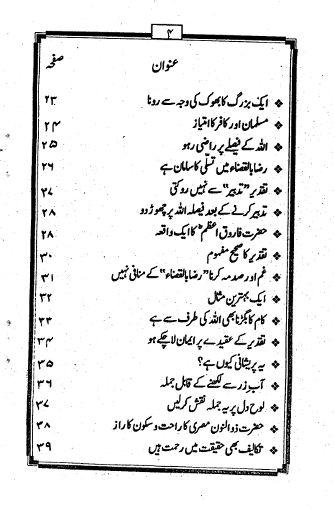 ۴
عنوان صفحہ
❖ ایک بزرگ کا بھوک کی وجہ سے رونا ۲۳
❖ مسلمان اور کافر کا امتیاز ۲۴
❖ اللہ کے فیصلے پر راضی رہو ۲۵
❖ رضا بالقضاء میں تسلّی کا سامان ہے ۲۶
❖ تقدیر "تدبیر" سے نہیں روکتی ۲۷
❖ تدبیر کرنے کے بعد فیصلہ اللہ پر چھوڑ دو ۲۸
❖ حضرت فاروق اعظمؓ کا ایک واقعہ ۲۸
❖ تقدیر کا صحیح مفہوم ۳۰
❖ غم اور صدمہ کرنا "رضا بالقضاء" کے منافی نہیں ۳۱
❖ ایک بہترین مثال ۳۲
❖ کام کا بگڑنا بھی اللہ کی طرف سے ہے ۳۳
❖ تقدیر کے عقیدے پر ایمان لاچکے ہو ۳۴
❖ یہ پریشانی کیوں ہے؟ ۳۵
❖ آب زر سے لکھنے کے قابل جملہ ۳۶
❖ لوح دل پر یہ جملہ نقش کرلیں ۳۷
❖ حضرت ذوالنون مصری کا راحت و سکون کا راز ۳۸
❖ تکالیف بھی حقیقت میں رحمت ہیں ۳۹